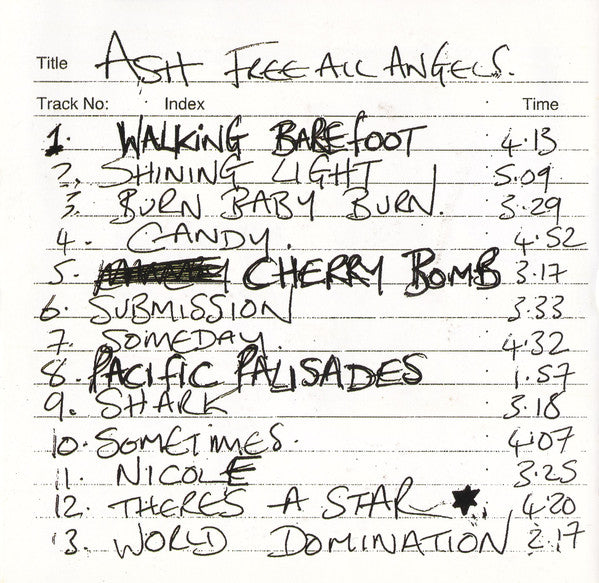 Title ASH FREE ALL ANGELS.
Track No: Index Time
1. WALKING BAREFOOT 4.13
2. SHINING LIGHT 5.09
3. BURN BABY BURN. 3.29
4. CANDY. 4.52
5. CHERRY BOMB 3.17
6. SUBMISSION 3.33
7. SOMEDAY. 4.32
8. PACIFIC PALISADES 1.57
9. SHARK 3.18
10. SOMETIMES. 4.07
11. NICOLE 3.25
12. THERE'S A STAR ★. 4.20
13. WORLD DOMINATION 2.17